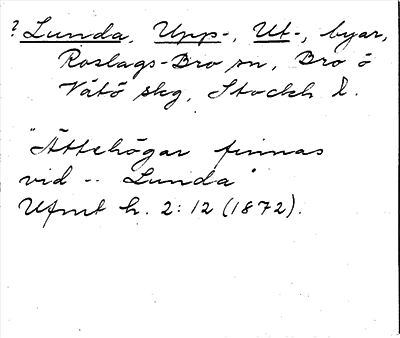 ? Lunda, Upp-, Ut-, byar,
Roslags-Bro sn, Bro o
Vätö skg, Stockh l.
"Ättehögar finnas
vid -- Lunda"
Ufmt h. 2:12 (1872).